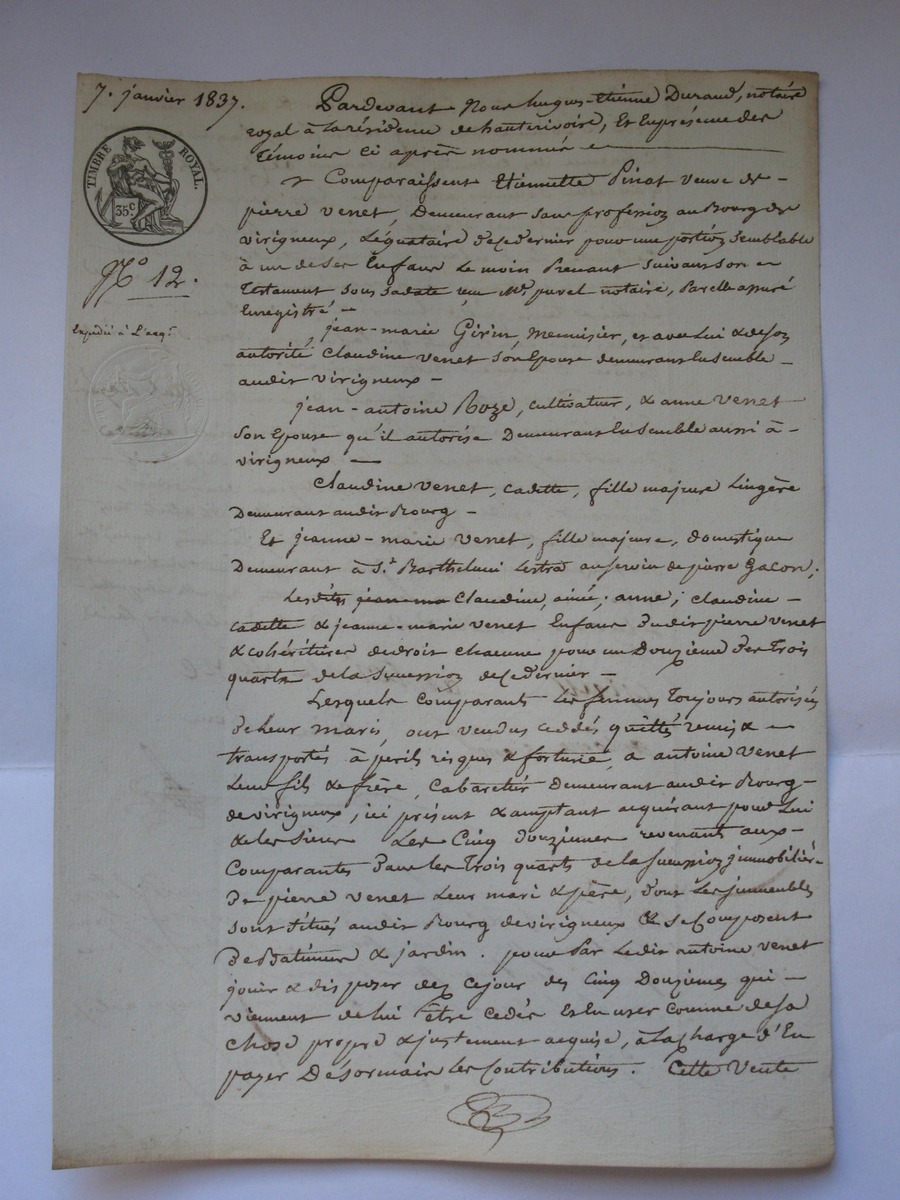 7. janvier 1837.
Pardevant Nous hugues-étienne Durand, notaire
royal à la résidence de hauterivoire, Et En présence des
Témoins ci après nommés
TIMBRE ROYAL.
35.c
N.o 12.
Expédié à L'acq.r
Comparaissent Etiennette Pinat veuve de
pierre venet, Demeurant sans profession au Bourg de
virigneux, Légataire de ce dernier pour une portion semblable
à un de ses Enfans Le moin Prenant suivant son
Testament sous sa date reçu M.e notaire, Par elle assuré
Enregistré
jean-marie Girin, Menuisier, et avec Lui & de son
autorité Claudine venet son Epouse demeurans Ensemble
audit virigneux
jean-antoine Roze, cultivateur, & anne venet
son Epouse qu'il autorise Demeurans Ensemble aussi à
virigneux
Claudine venet, cadette, fille majeure Lingère
Demeurant audit Bourg
Et jeanne-marie venet, fille majeure, domestique
Demeurant à S.t Barthelemi Lestra au service de pierre Gacon;
Lesdites Claudine, ainée; anne; Claudine
cadette & jeanne-marie venet Enfans Dudit pierre venet
& cohéritières de droit chacune pour un Douzième des Trois
quarts de la succession de ce dernier
Lesquels comparants Les femmes Toujours autorisées
De leur maris, ont vendus cédés quittés remis &
transportés à perils risques & fortune, a antoine venet
Leur fils & frère, Cabaretier Demeurant audit Bourg
de virigneux, ici présent & acceptant acquérant pour Lui
& les siens Les Cinq Douzièmes revenant aux
Comparants Dans les Trois quarts de la succession immobilière
De pierre venet Leur mari & père, dont Les immeubles
sont situés audit Bourg de virigneux & se Composent
De Batimens & jardin. pour Par Ledit antoine venet
jouir & disposer dez ce jour des Cinq Douzièmes qui
viennent de lui être cedés Et en user comme de sa
chose propre & justement acquise, à La charge d'En
payer Désormais les Contributions. Cette vente